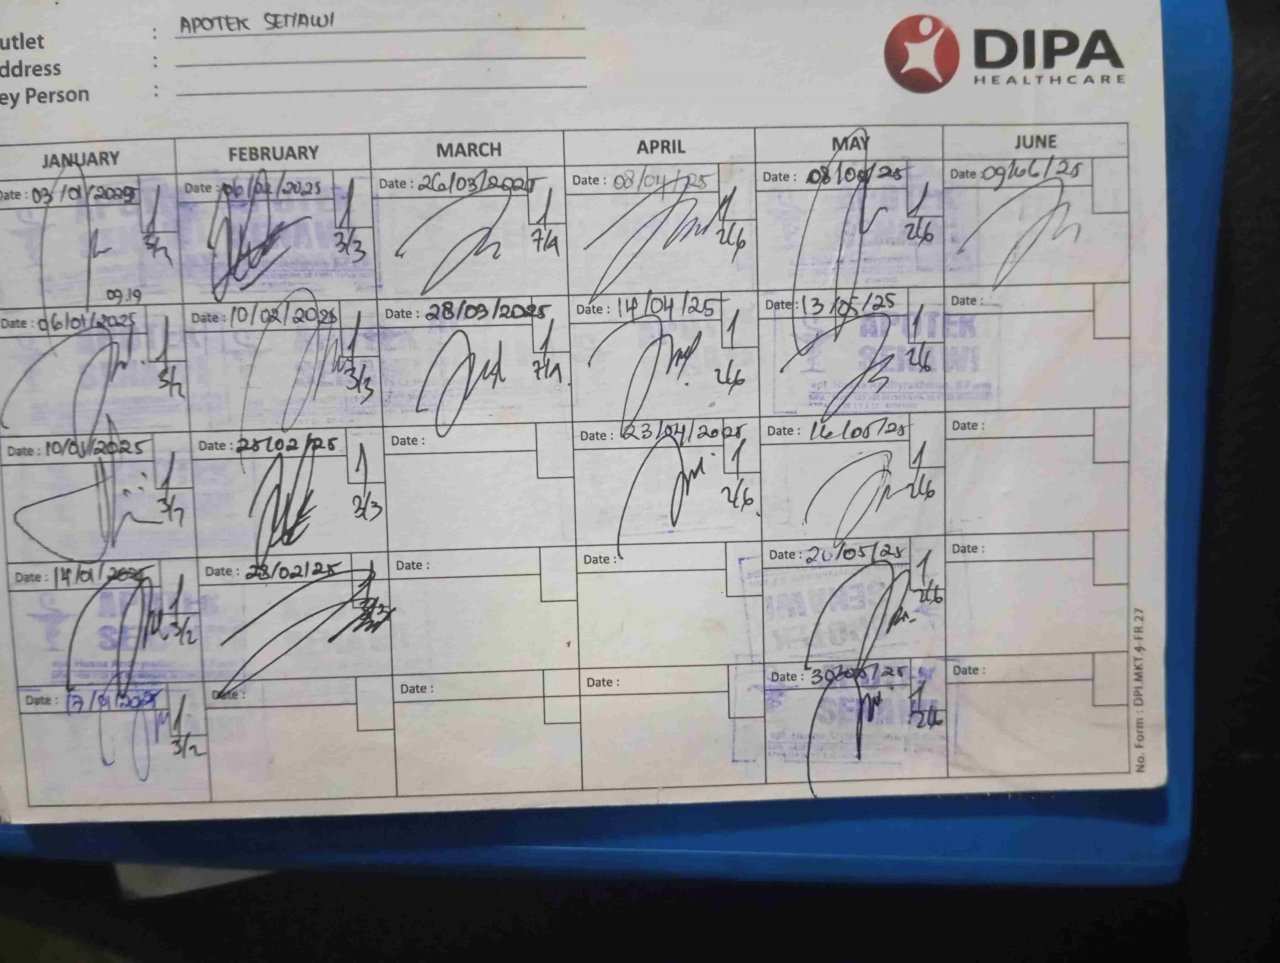 utlet : APOTEK SETIAWI
ddress :
ey Person :
DIPA
HEALTHCARE
JANUARY FEBRUARY MARCH APRIL MAY JUNE
Date : 03/01/2025 Date : 06/02/2025 Date : 26/03/2025 Date : 08/04/25 Date : 08/05/25 Date : 09/06/25
3/2 3/3 7/4 2/6 2/6
09.19
Date : 06/01/2025 Date : 10/02/2025 Date : 28/03/2025 Date : 14/04/25 Date : 13/05/25 Date :
3/2 3/3 7/4 2/6 2/6
APOTEK
Date : 10/01/2025 Date : 25/02/25 Date : Date : 23/04/2025 Date : 16/05/25 Date :
3/2 3/3 2/6 2/6
Date : 14/01/2025 Date : 28/02/25 Date : Date : Date : 20/05/25 Date :
3/2 2/6
APOTEK
Date : 17/01/2025 Date : Date : Date : Date : 30/05/25 Date :
3/2 2/6
No. Form : DPI.MKT.4-FR 27